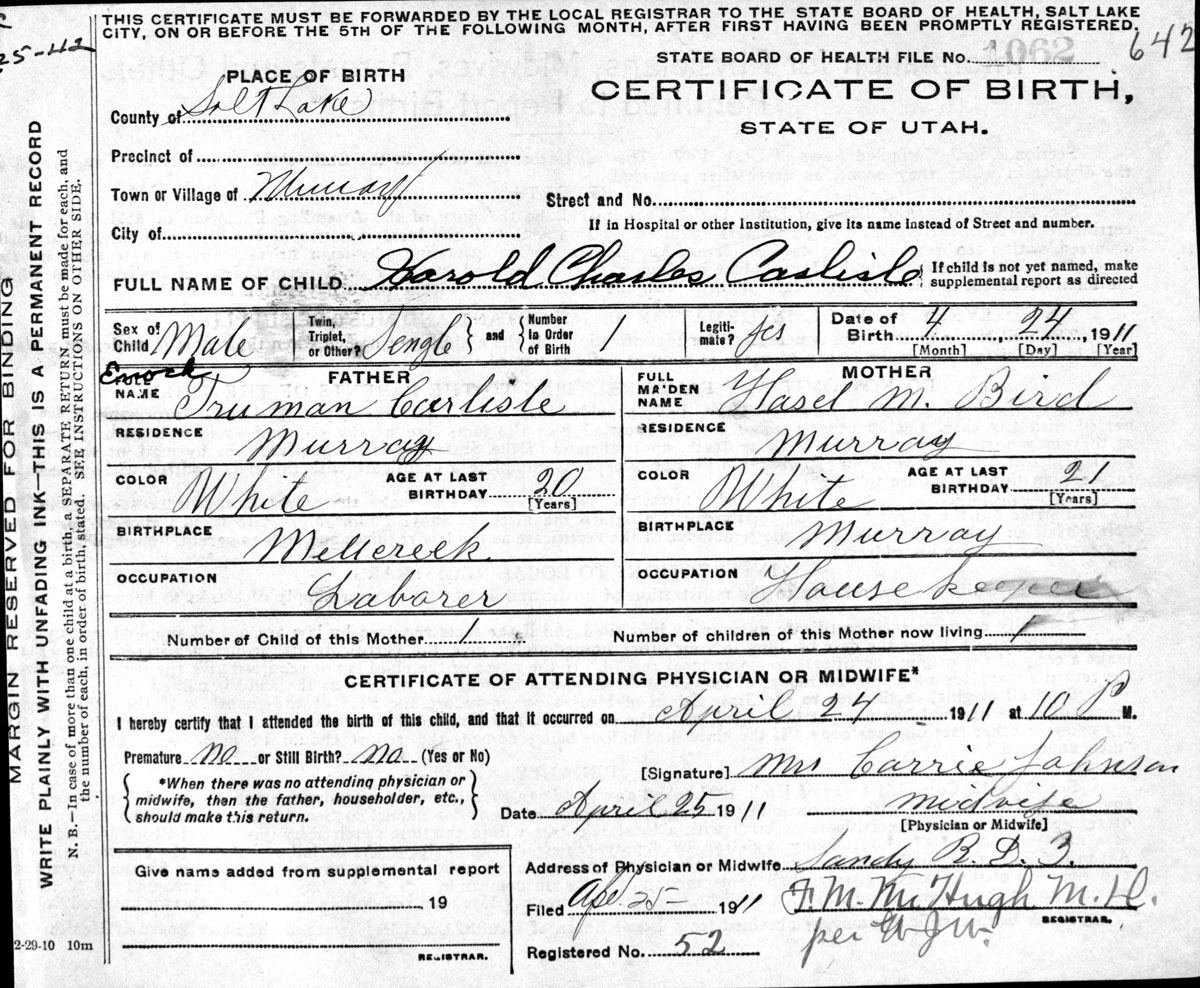 THIS CERTIFICATE MUST BE FORWARDED BY THE LOCAL REGISTRAR TO THE STATE BOARD OF HEALTH, SALT LAKE
CITY, ON OR BEFORE THE 5TH OF THE FOLLOWING MONTH, AFTER FIRST HAVING BEEN PROMPTLY REGISTERED.
25-112
642
STATE BOARD OF HEALTH FILE No. 1062
PLACE OF BIRTH
CERTIFICATE OF BIRTH,
STATE OF UTAH.
County of Salt Lake
Precinct of
Town or Village of Murray
Street and No.
City of
If in Hospital or other Institution, give its name instead of Street and number.
FULL NAME OF CHILD Harold Charles Carlisle
If child is not yet named, make
supplemental report as directed
Sex of Child Male
Twin, Triplet, or Other? Single and Number in Order of Birth 1
Legitimate? Yes
Date of Birth 4 24 1911
[Month] [Day] [Year]
FATHER
FULL NAME Enoch Truman Carlisle
MOTHER
FULL MAIDEN NAME Hasel M. Bird
RESIDENCE Murray
RESIDENCE Murray
COLOR White AGE AT LAST BIRTHDAY 20 [Years]
COLOR White AGE AT LAST BIRTHDAY 21 [Years]
BIRTHPLACE Millcreek
BIRTHPLACE Murray
OCCUPATION Laborer
OCCUPATION House keeper
Number of Child of this Mother 1
Number of children of this Mother now living 1
CERTIFICATE OF ATTENDING PHYSICIAN OR MIDWIFE*
I hereby certify that I attended the birth of this child, and that it occurred on April 24 1911 at 10 P M.
Premature No or Still Birth? No (Yes or No)
*When there was no attending physician or
midwife, then the father, householder, etc.,
should make this return.
[Signature] Mrs Carrie Johnson
Date April 25 1911 midwife
[Physician or Midwife]
Give name added from supplemental report
19
REGISTRAR.
Address of Physician or Midwife Sandy R. D. 3.
Filed Apl. 25- 1911 F. M. McHugh M.H.
REGISTRAR.
per W J W.
Registered No. 52
2-29-10 10m
MARGIN RESERVED FOR BINDING
WRITE PLAINLY WITH UNFADING INK—THIS IS A PERMANENT RECORD
N. B.—In case of more than one child at a birth, a SEPARATE RETURN must be made for each, and
the number of each, in order of birth, stated. SEE INSTRUCTIONS ON OTHER SIDE.